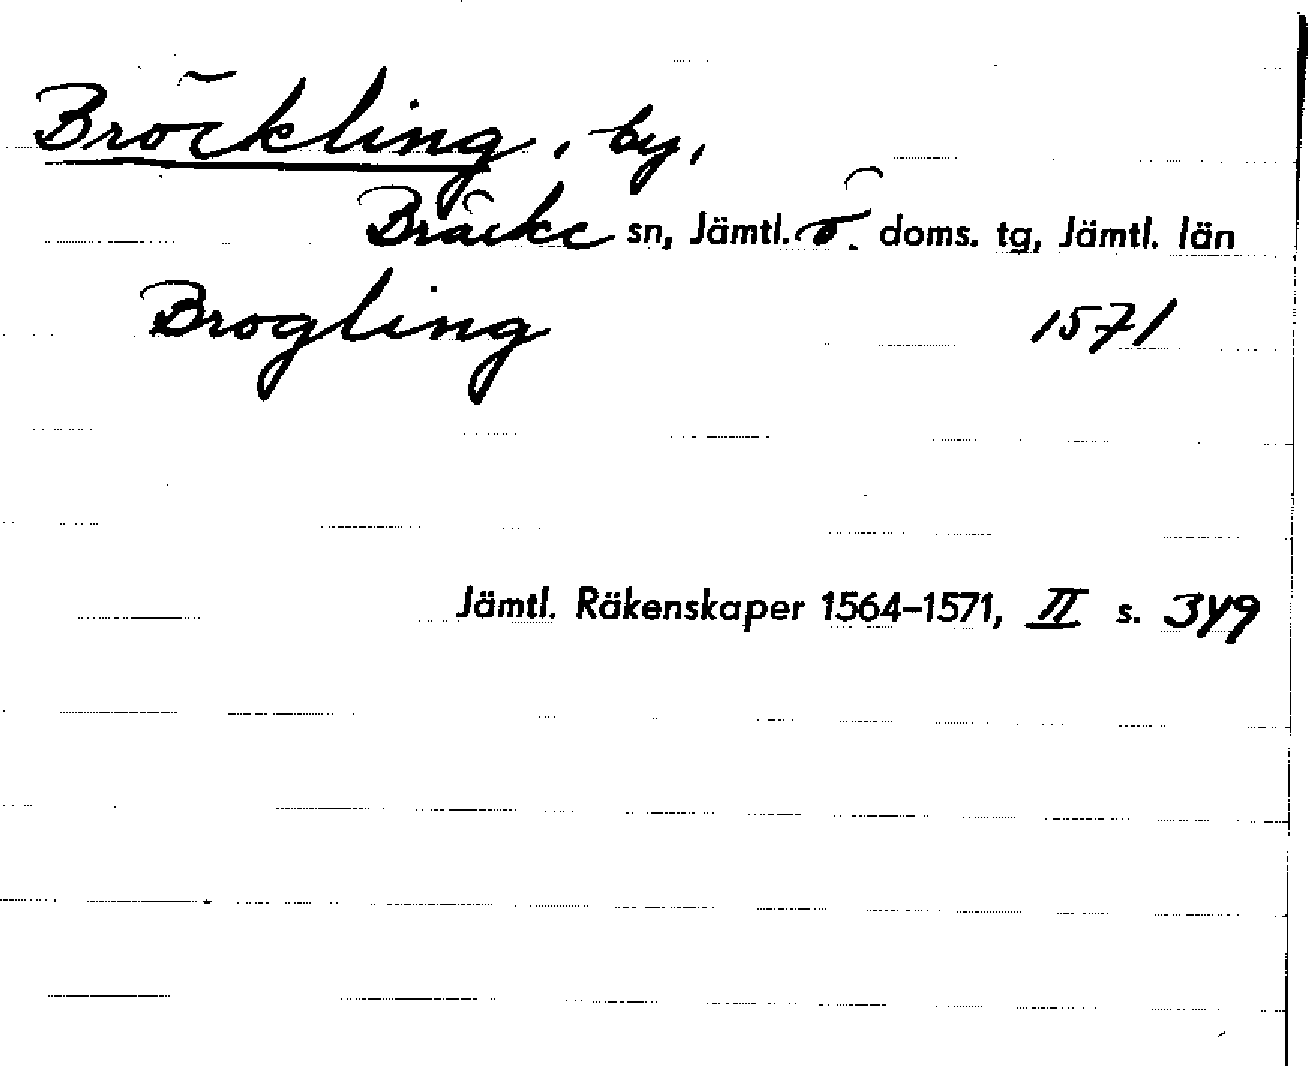 Bröckling, by,
Bräcke sn, Jämtl. ö. doms. tg, Jämtl. län
Brogling 1571
Jämtl. Räkenskaper 1564–1571, II s. 349